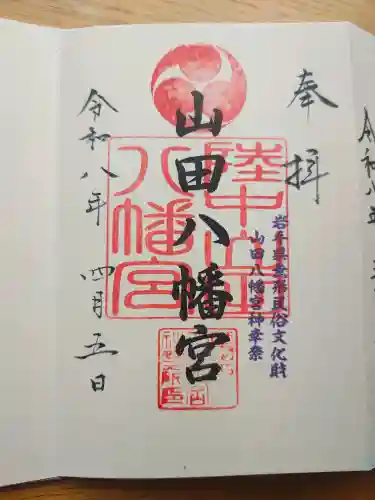 奉拝
岩手県無形民俗文化財
山田八幡宮神幸祭
陸中山田
八幡宮
山田八幡宮
令和八年 四月五日
令和八年